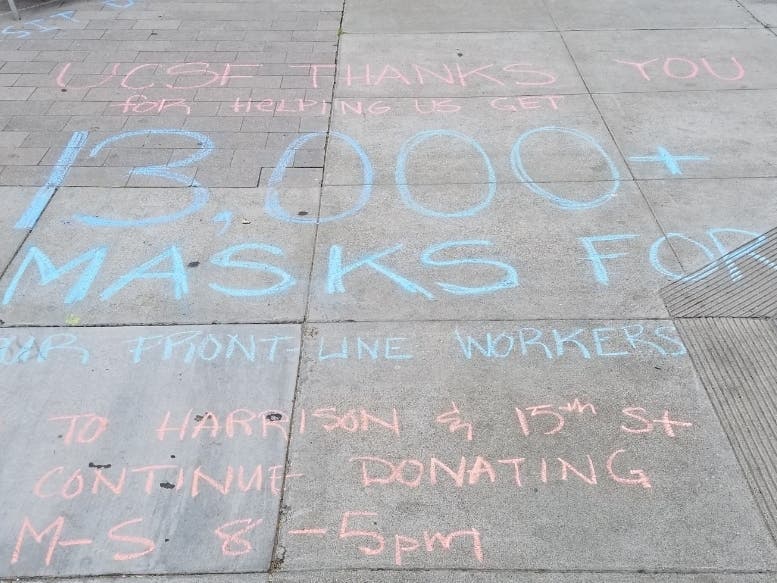 UCSF THANKS YOU
FOR HELPING US GET
13,000+
MASKS FOR
OUR FRONT-LINE WORKERS
TO HARRISON & 15th St
CONTINUE DONATING
M-S 8-5pm